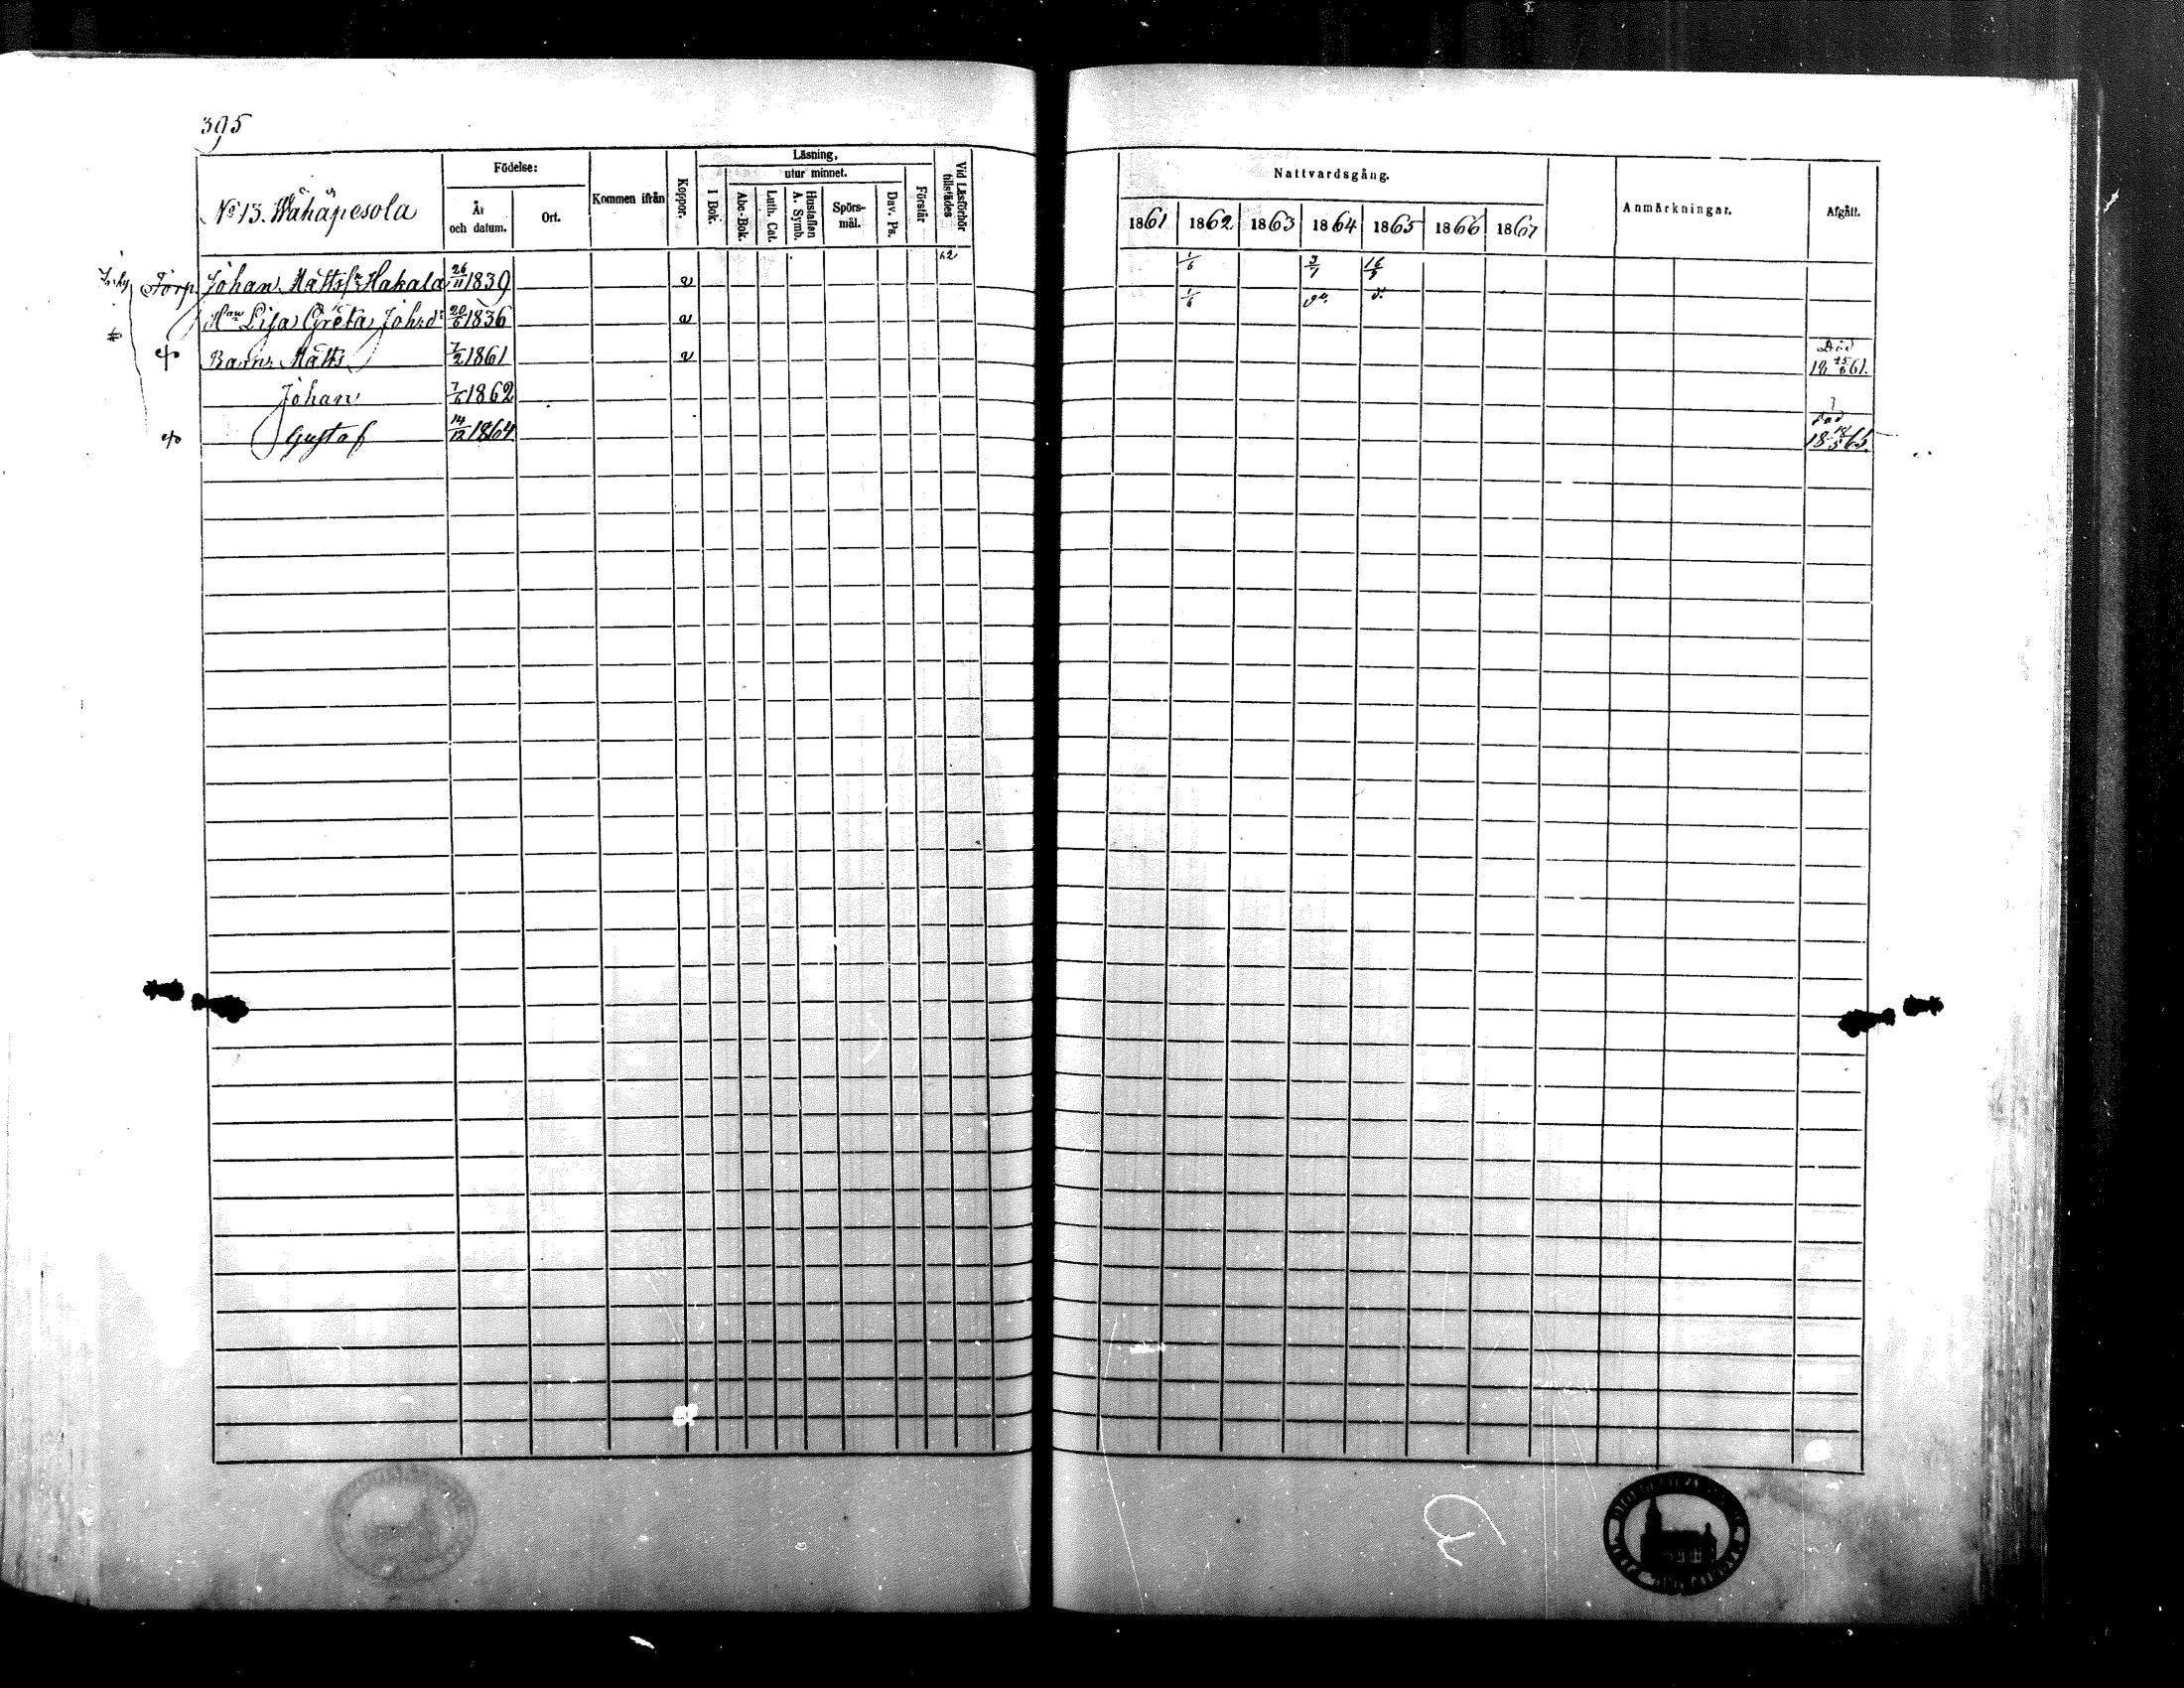 395
No 13. Wähäpesola
Födelse:
År och datum.
Ort.
Kommen ifrån
Koppor.
Läsning,
I Bok.
utur minnet.
Abc-Bok.
Luth. Cat.
Hustaflan A. Symb.
Spörs-mål.
Dav. Ps.
Förstår
Vid Läsförhör tillstädes
Nattvardsgång.
1861 1862 1863 1864 1865 1866 1867
Anmärkningar.
Afgått.
62
Torp. Johan Matts sn Hakala 26/11 1839 v 1/6 3/7 16/7
Hu Lisa Greta Joh:dr 20/6 1836 v 1/6 do d.
Barn: Matts 7/2 1861 v Död 18 25/6 61.
Johan 7/6 1862
Gustaf 14/12 1864 död 18 12/5 65.